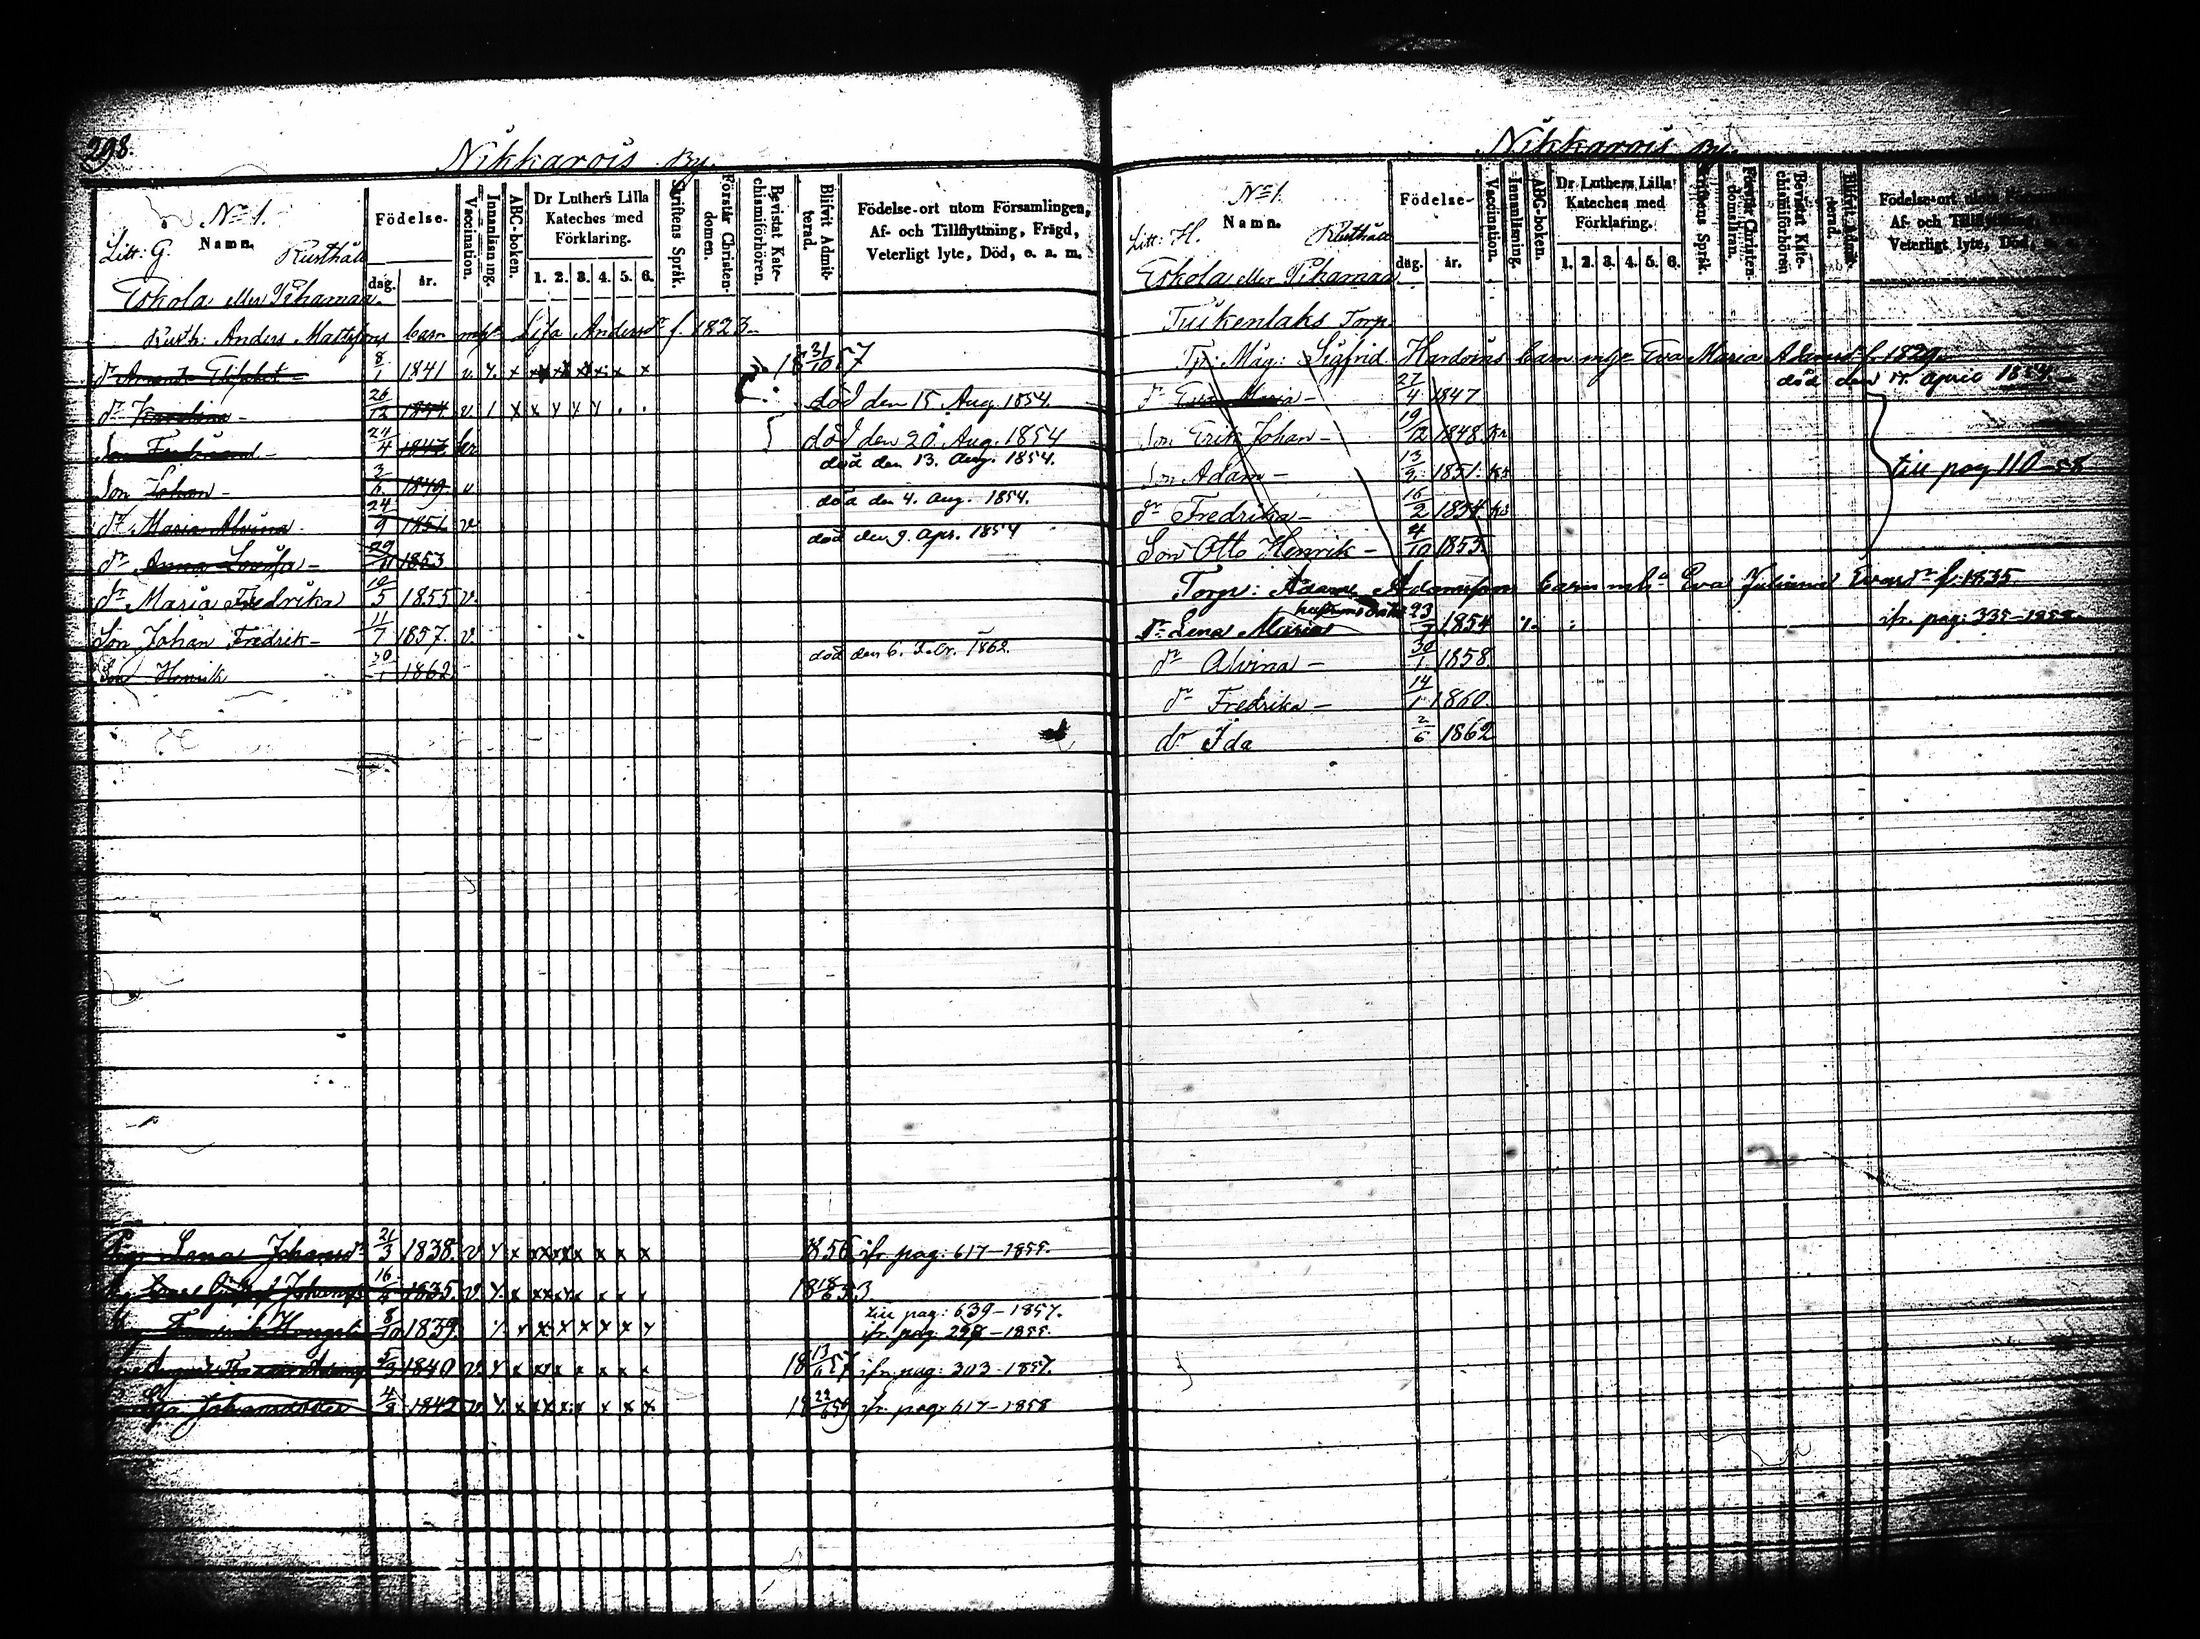 298.
Nikkarois By.
No 1.
Litt: G. Namn. Rusthåll
Eskola eller Pihamaa.
Födelse-
dag. år.
Vaccination.
Innanläsning.
ABC-boken.
Dr Luthers Lilla Kateches med Förklaring.
1. 2. 3. 4. 5. 6.
Skriftens Språk.
Förstår Christendomen.
Bevistat Katechismiförhören.
Blifvit Admitterad.
Födelse-ort utom Församlingen,
Af- och Tillflyttning, Frägd,
Veterligt lyte, Död, o. a. m.
Rusth. Anders Mattssons barn m. Lisa Andersdr f. 1823
dr Amanda Elisabet 8/1 1841 v. x x x x x x x 18 31/10 57
dr Karolina 26/12 1844 v. död den 15 Aug. 1854.
Son Ferdinand 24/4 1847 död den 20 Aug. 1854
Son Johan 3/ 1849 v död den 13. Aug. 1854.
dr Maria Alvina 24/9 1851 v död den 4. Aug. 1854.
dr Anna Lovisa 29/11 1853 död den 9. Apr. 1854
dr Maria Fredrika 10/5 1855 v.
Son Johan Fredrik 11/7 1857. v.
Son Henrik 30/1 1862 död den 6. Febr. 1862.
Lena Johansdr 21/3 1838. v. x x x x x x x 1856 ifr. pag: 617-1855.
Gustaf Johans 16/ 1835. v. x x x x x x 18 18/6 53
till pag: 639-1857.
Fredrik 8/10 1839. x x x x x x ifr. pag. 298-1855.
August 5/3 1840 v. x x x x x x 18 13/6 57 ifr. pag: 303-1857.
Lisa Johansdotter 4/3 1842 v. x x x x x x x 18 22/6 59 ifr. pag. 617-1858
Nikkarois By.
No 1.
Litt: H. Namn. Rusthåll
Eskola eller Pihamaa
Födelse-
dag. år.
Vaccination.
Innanläsning.
ABC-boken.
Dr Luthers Lilla Kateches med Förklaring.
1. 2. 3. 4. 5. 6.
Skriftens Språk.
Förstår Christendomsläran.
Bevistat Katechismiförhören
Blifvit Admitterad.
Födelse-ort utom
Af- och Tillflyttning,
Veterligt lyte, Död,
Tuikenlaks Torp.
Tp: Måg: Sigfrid Hardoins barn m. Eva Maria Adamsdr f. 1829
dr Eva Maria 27/4 1847 död den 17. April 1854.
Son Erik Johan 19/12 1848.
Son Adam 13/2 1851. till pag 110-58
dr Fredrika 16/2 1854.
Son Otto Henrik 4/10 1855
Torp: Adam Adamsson barn m. h:u Eva Juliana f. 1835
dr Lena Maria 23/ 1854 ifr. pag: 335-1859.
dr Alvina 30/1 1858
dr Fredrika 14/1 1860.
dr Ida 2/6 1862